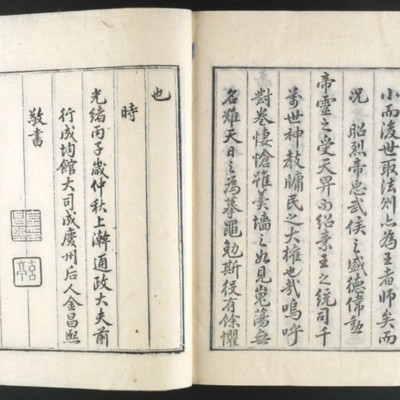 小而後世取法則亦為王者師矣而
況 昭烈帝忠武侯之盛德偉勳
帝靈之受天畀而紹素王之統司千
萬世神教牖民之大權也哉嗚呼
對卷悽愴雖羹墻之如見嵬蕩無
名難天日之為摹黽勉斯役有餘懼
也
時
光緒丙子歲仲秋上澣通政大夫前
行成均館大司成慶州后人金昌熙
敬書